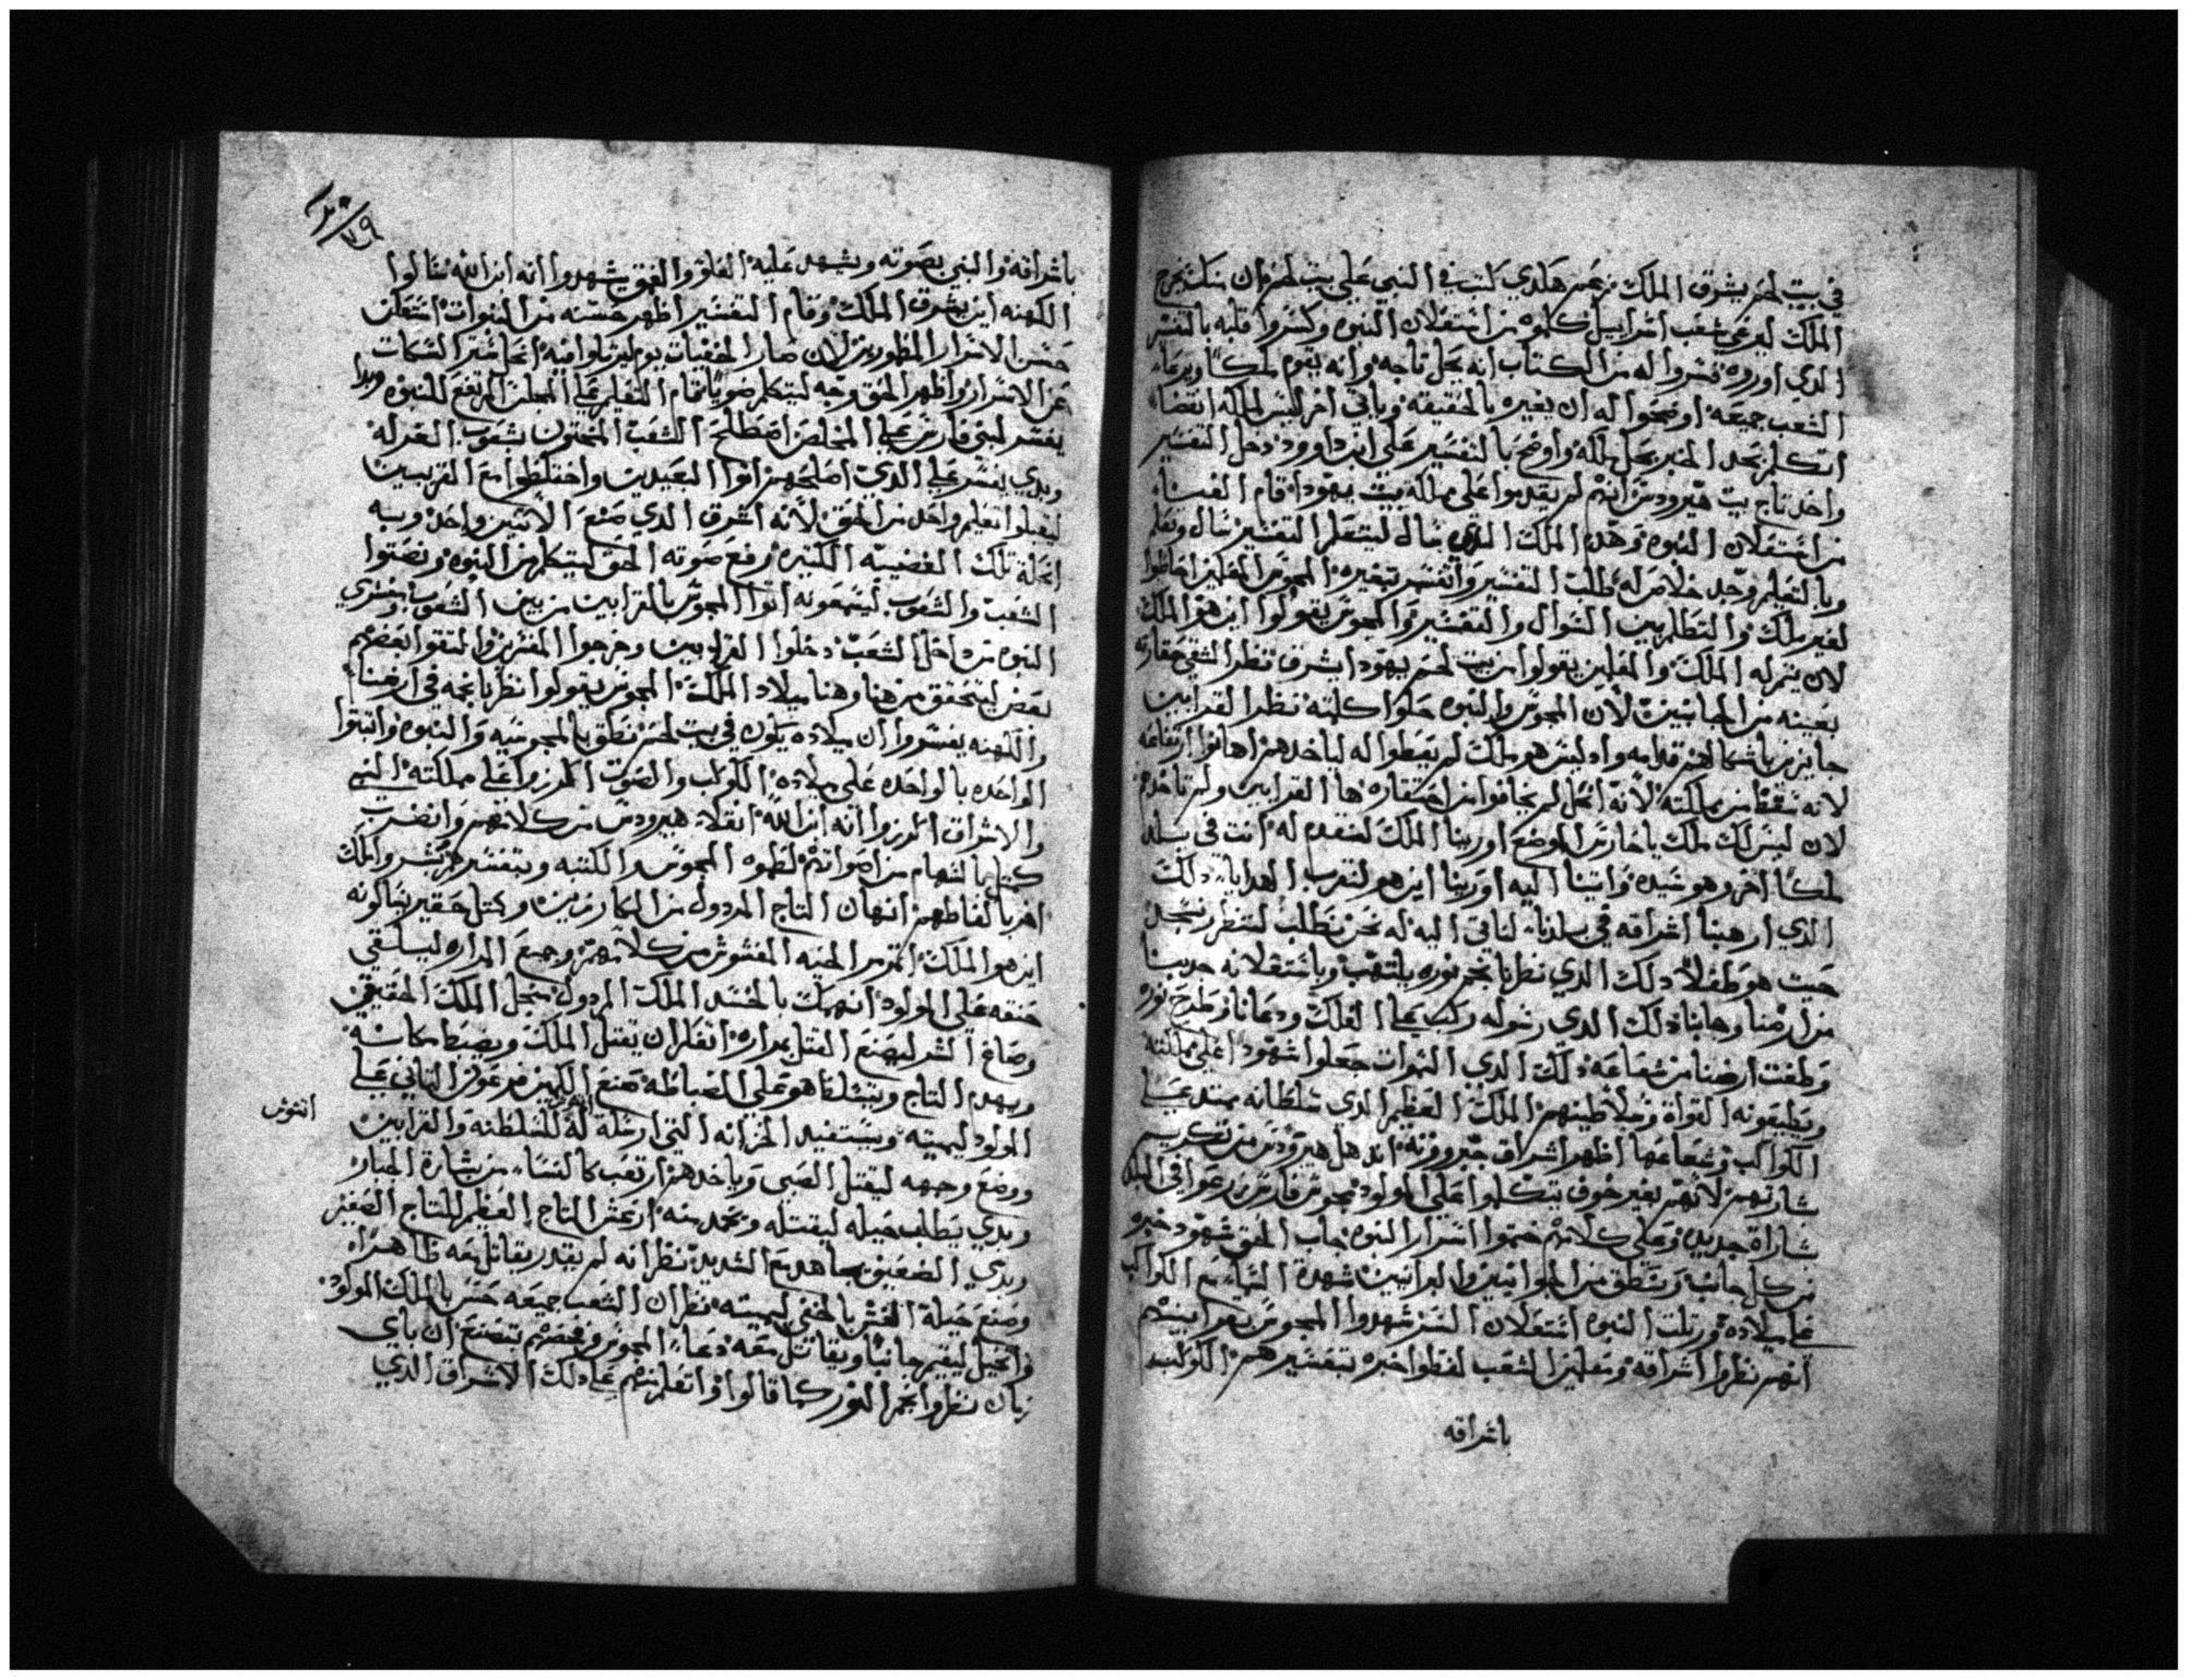 في بيت لحم يشرق الملك نزعم هكدي كتب في النبي علي بيت لحم ان منك يخرج
الملك ليرعي شعب اسراييل كلموه من استعلان النبوه وكسروا قلبه بالتفسير
الدي اوروه فسروا له من الكتاب انه يحل تاجه وانه يقوم ملكًا ويرعا
الشعب جميعه اوضحوا له ان بغيره بالحقيقه وياتي اخر ليس لملكه انقضا
اتكلم بحد الخبر بحل ملكه واوضح بالتفسير علي ابن داوود دخل التفسير
واخد تاج بيت هيرودس انهم لم يقدموا علي مملكة بيت يهودا قام
من استعلان النبوه وهدا الملك الدي سال ليتعلم التفسير سال وتعلم
وبالتعليم وجد خلاص له طلب التفسير واتفسر بتغيره المجوس المعلمين
لغير ملك والتطلم بين السوال والتفسير والمجوس يقولوا اين هو الملك
لان ينمر له الملك والمعلمين يقولوا من بيت لحم يهودا يشرق نظر الشقي حقارته
بعينه من الجانبين لان المجوس والنبوه حلوا كلمته نظر القرابين
جايزين باشكالهم قدامه واد ليس هو ملك لم يعطوا له لياخدهم اهانوا ارتفاعه
لانه سقط من مملكته لانه انحل لم يخافوا من احتقاره ها القرابين ولم تاخدهم
لان ليس لك ملك يا حارس الموضع اورينا الملك لنتقدم له انت في بلد
ملكًا اخر وهو سيده واتينا اليه اورينا اين هو لنقرب الهدايا دلك
الدي ارهبنا اشراقه في بلدنا لناتي اليه له نحن نطلب لننظر ونسجد
حيث هو طفلاً دلك الدي نظرنا نجم نوره يلتهب وباستعلانه جدبنا
من ارضنا وهابنا دلك الدي رسوله ركب علي الفلك ودعانا وطرح نوره
وطفت ارضنا من شعاعه دلك الدي السموات جعلوا شهود علي مملكته
ويطيعونه القواة وسلاطينهم الملك العظيم الدي سلطانه يمتد علي
الكواكب وشعاعها اظهر اشراق جبروته اندهل هيرودس من تكريم
بشارتهم لانهم بغير خوف يتكلموا علي المولود مجوس فارس زرعوا في البلد
بشاراة جديده وعلي كلامهم ختموا اسرار النبوه جاب الحق شهود خبره
من كل جانب ونطق من الجوانيين والبرانيين شهدة السما مع الكواكب
علي ميلاده ورتلت النبوه استعلان السر شهدوا المجوس بقرابينهم
انهم نظروا اشراقه ومعلمين الشعب لفظوا خبره بتفسيرهم الكوكب
باشراقه
٧٩
باشراقه والنبي بصوته ويشهد عليه العلو والعمق يشهدوا انه ابن الله سالوا
الكهنه اين يشرق الملك وقام التفسير اظهر حسنه من النبوات استعلن
حسن الاسرار المطمورين لان صار الخفيات يوم ليزيلوا فيه انحل ستر السكات
عن الاسرار واظهر الحق وجه ليتكلم ضويًا قام التعليم علي المجلس المرتفع للنبوه وبدا
يفسر لبني فارس علي المخلص اصطلح الشعب المختون بشعوب الغرله
وبدي يفسر علي الدي اصلحهم اتوا البعيدين واختلطوا مع القريبين
ليقبلوا تعليم واحد من الحق لانه اشرق الدي صنع الاتنين واحد وبه
انحلة تلك الغضبيه الكتيره رفع صوته الحق ليتكلم من النبوه ونصتوا
الشعب والشعوب ليسمعونه اتوا المجوس بالقرابين من بين الشعوب ومفسري
النبوه من داخل الشعب دخلوا القرابين وخرجوا المفسرين والتقوا بعضهم
بعض ليتحقق من هنا وهنا ميلاد الملك المجوس يقولوا نظرنا نجمه في ارضنا
والكهنه يفسروا ان ميلاده يكون في بيت لحم نطق بالمجوسيه والنبوه واتبتوا
الواحده بالواحده علي ميلاده الكوكب والصوت اكرزوا علي مملكته النجم
والاشراق اكرزوا انه ابن الله انقلا هيرودس من كلامهم وانضرب
كمتل بالسهام من اصواتهم لطموه المجوس والكتبه وبتفسيرهم بشروا بملك
اخر بالفاظهم انهان التاج المردول من الكارزين وكمتل حقير يسالونه
اين هو الملك اتمرمر الحيه المغشوش من كلامهم وجمع المراره ليسلقي
حنقه علي المولود انهمك بالحسد الملك المردول من اجل الملك الحقيقي
وصاغ الشر ليصنع القتل بمراره اتفكر ان يقتل الملك ويضبط مكانه
ويهدم التاج ويتسلط هو علي الضباطه صنع الكمين فرعون التاني علي
المولود ليميته ويستفيد الخزانه التي ارسلة له للسلطنه والقرابين
انثوس
ووضع وجهه ليقتل الصبي وياخدهم ارتعب كالنسا من بشارة الجبار
وبدي يطلب حيله ليقتله وتخمد منه ارتعش التاج العظيم للتاج الصغير
وبدي الضعيف يجاهد مع الشديد نظر انه لم يقدر يقاتل معه ظاهرًا
وصنع حيلة الغش بالخفي ليميته نظر ان الشعب جميعه حس بالملك المولود
واتحيل ليقيم جانبًا ويقاتل معه دعا المجوس وفحصهم بتصنع ان باي
زمان نظروا نجم النور كما قالوا واتعلم منهم علي دلك الاشراق الدي